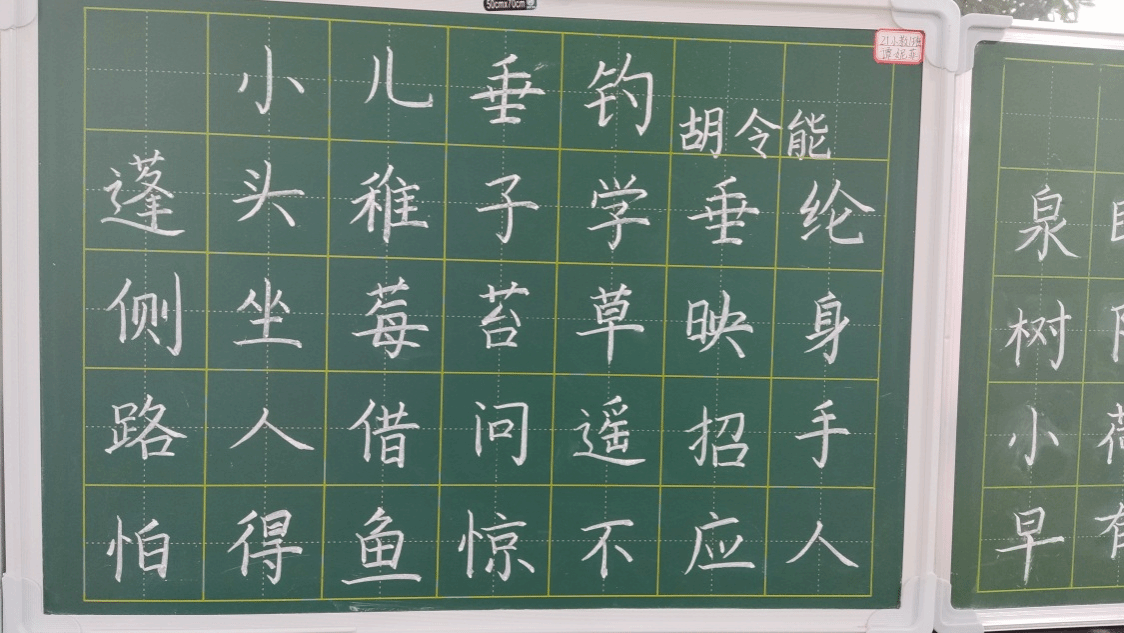 50cmx70cm
小儿垂钓
胡令能
蓬头稚子学垂纶
侧坐莓苔草映身
路人借问遥招手
怕得鱼惊不应人
泉
树
小
早